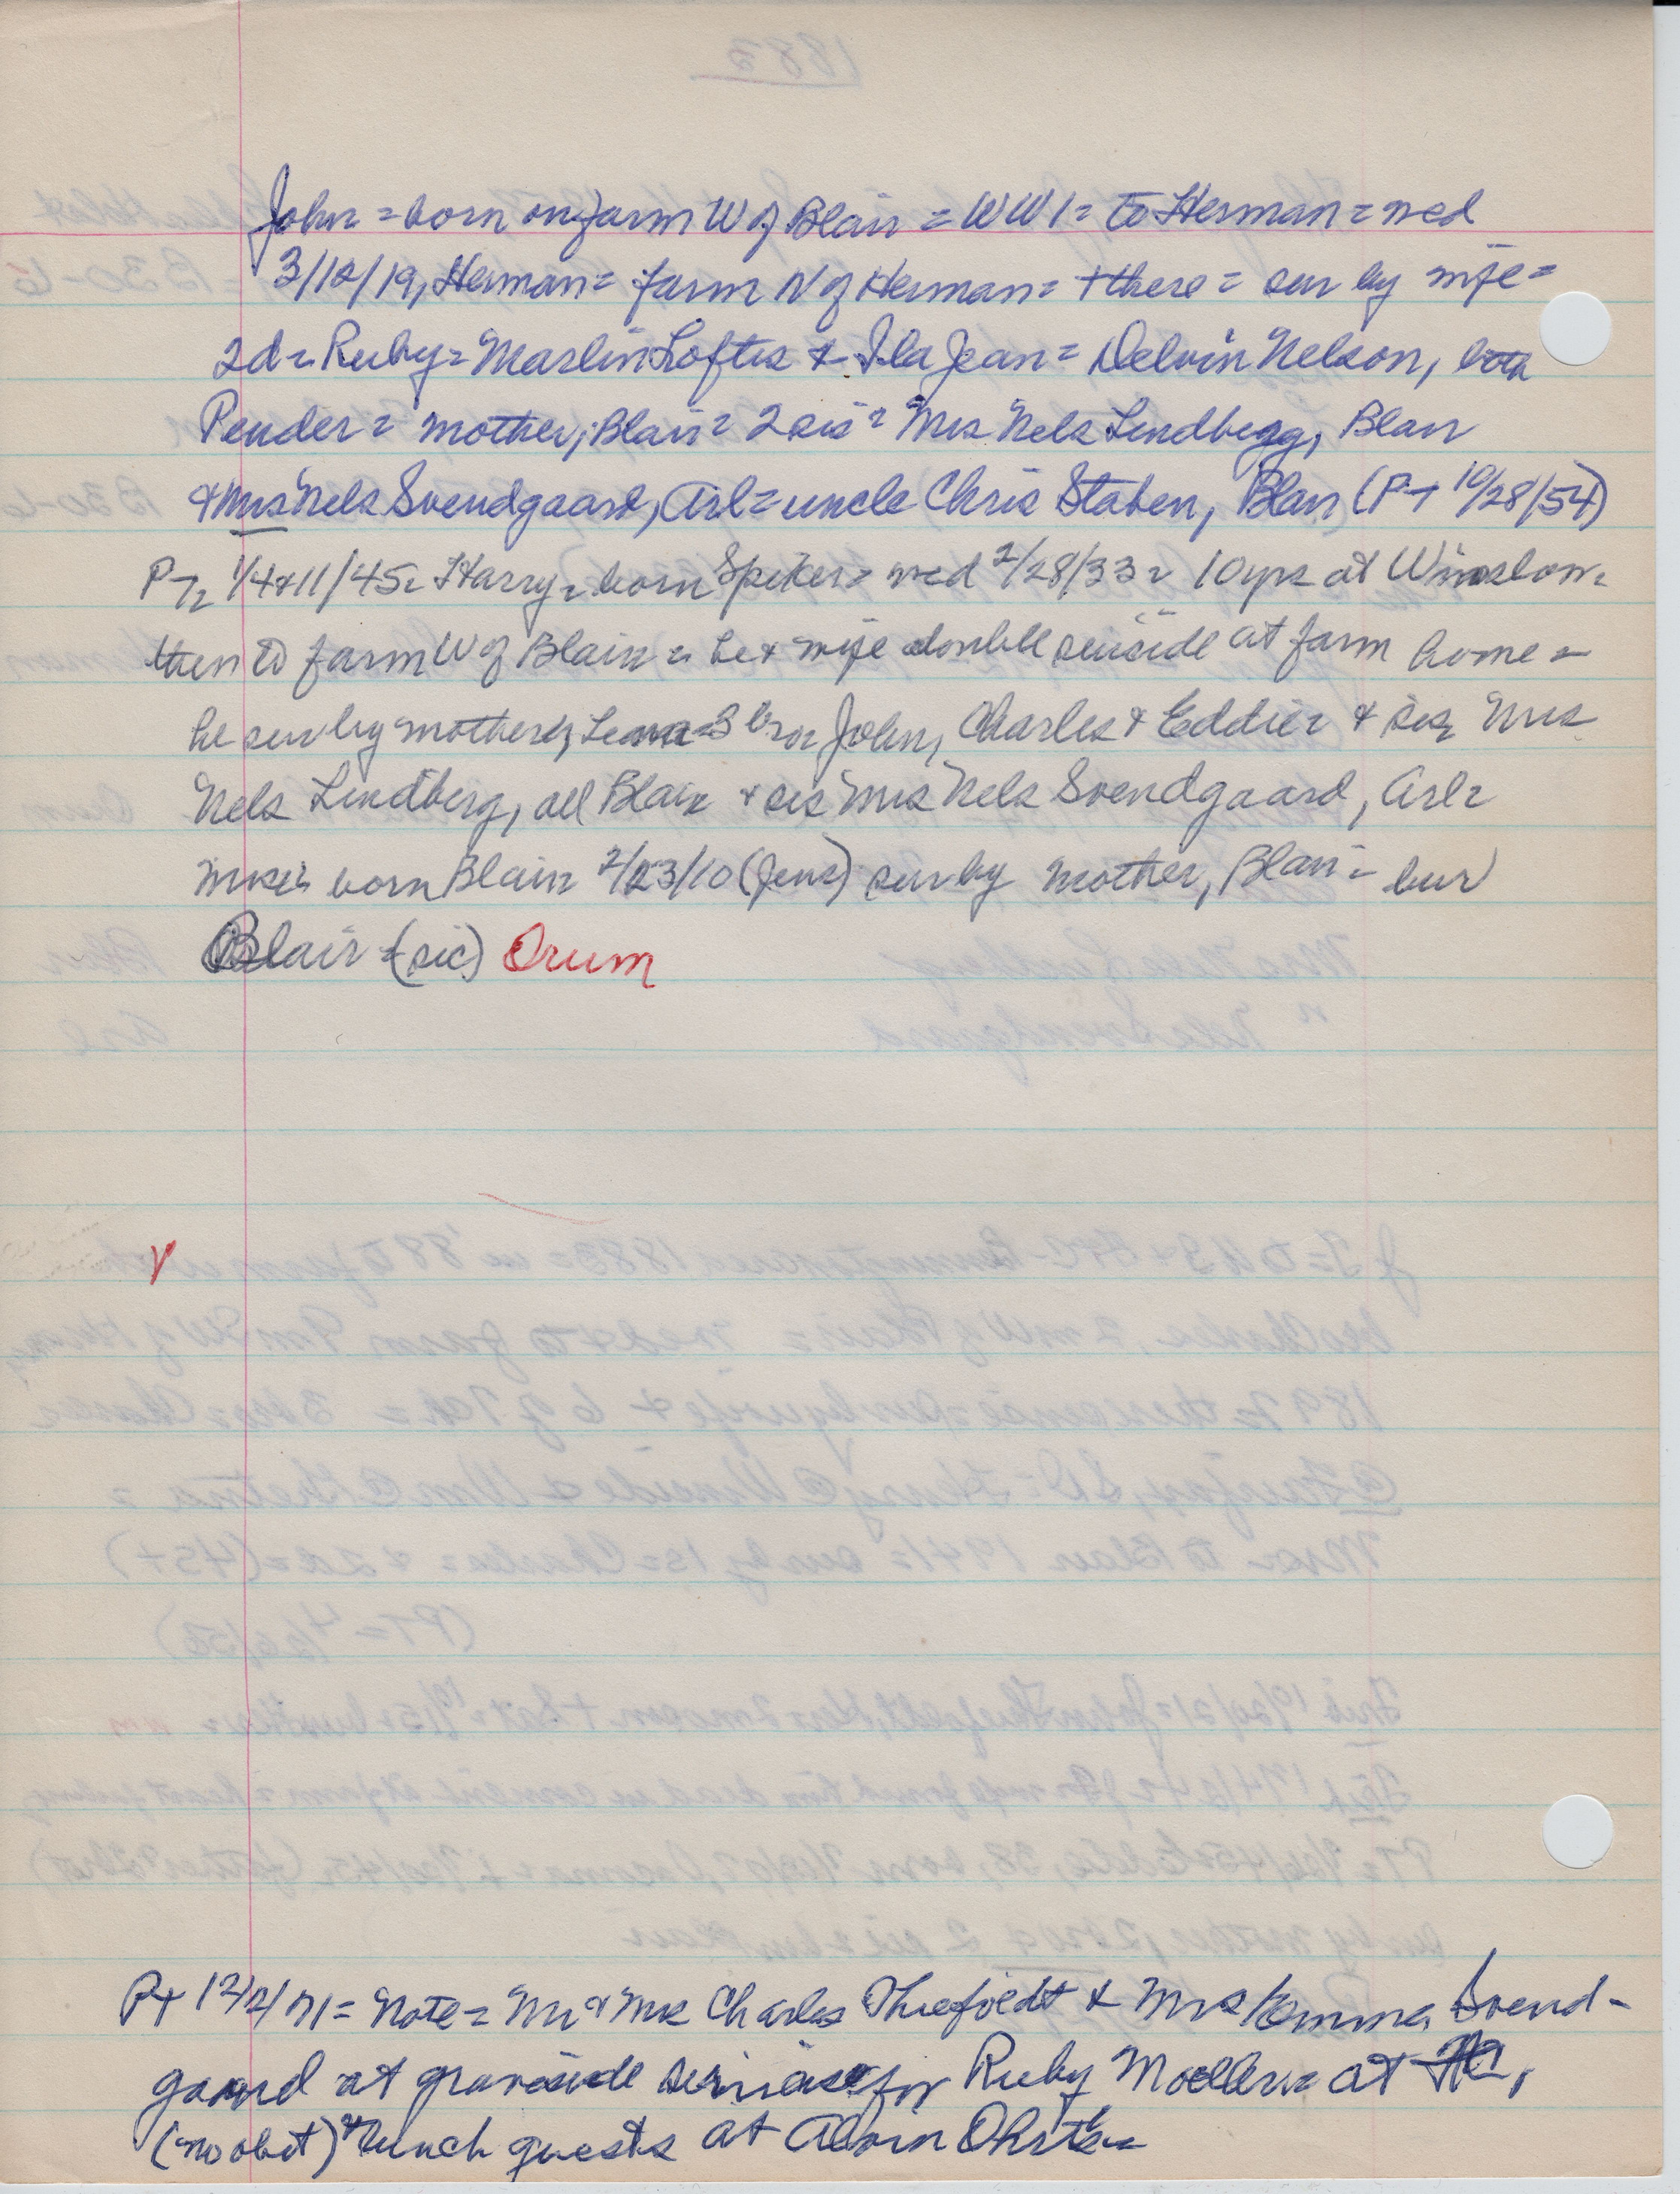 John = born on farm W of Blair = WW1 = to Herman = wed
3/12/19, Herman = farm N of Herman = + there = sur by wife =
2d = Ruby = Marlin Loftis & Ila Jean = Delvin Nelson, both
Pender = mother, Blair = 2 sis = Mrs Nels Lindbegg, Blair
& Mrs Nels Svendgaard, Arl = uncle Chris Staben, Blair (PT 10/28/54)
PT= 1/4&11/45= Harry = born Spiker = wed 2/28/33 = 10 yrs at Winslow =
then to farm W of Blair = he & wife double suicide at farm home =
he sur by mother, Lena = 3 bro= John, Charles & Eddie = & sis, Mrs
Nels Lindberg, all Blair & sis Mrs Nels Svendgaard, Arl =
born Blair 2/23/10 (Jens) sur by mother, Blair = bur
Blair = (sic) Orum
V
PT 12/2/71 = Note = Mr & Mrs Charles Thiefoldt & Mrs Emma Svend-
gaard at graveside services for Ruby Moellers at
(no obit) & lunch guests at Alvin Ohrts =